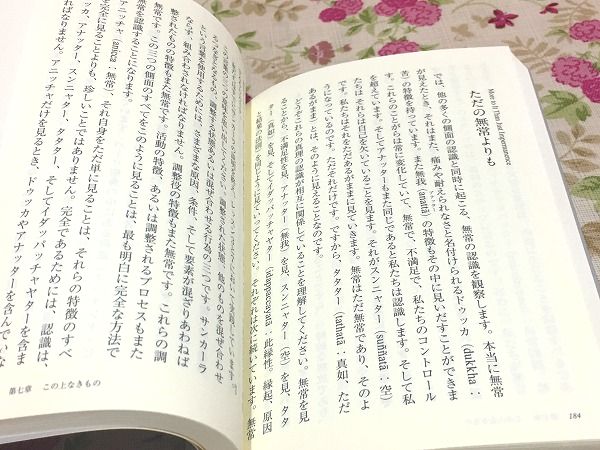 More to It Than Just Impermanence
ただの無常よりも
では、他の多くの側面の認識と同時に起こる、無常の認識を観察します。本当に無常
が見えたとき、それはまた、痛みや耐えられなさと名付けられるドゥッカ（dukkha：
苦）の特徴を持っています。また無我（anattā アナッター）の特徴もその中に見いだすことができま
す。これらのことがらは常に変化していて、無常で、不満足で、私たちのコントロール
を超えています。そしてアナッターもまた同じであると私たちは認識します。そして私
たちはそれらは自己を欠いていることを見ます。それがスンニャター（suññatā：空）
です。私たちはそれをただあるがままに見ていきます。無常はただ無常であり、そのよ
うになっているのです。ただそれだけです。ですから、タタター（tathatā：真如、ただ
あるがまま）とは、そのように見えることなのです。
どうぞこれらの真理の認識が相互に関係していることを理解してください。無常を見
ることから、不満足性を見、アナッター（無我）を見、スンニャター（空）を見、タタ
ター（真如）を見、そしてイダッパッチャヤター（idappaccayatā：此縁性。縁起、原因
それぞれは次に続いています。無常
184
という言葉を使用するためには、さまざまな原因、条件、そして要素が混ざりあわねば
ならず、組み合わされなければなりません。調整役の特徴もまた無常です。これらの調
整されたものの特徴もまた無常です。活動の特徴、あるいは調整されるプロセスもまた
無常です。この三つの側面のすべてをこのように見ることは、最も明白に完全な方法で
無常を認識することになります。
アニッチャ（anicca：無常）それ自身をただ単に見ることは、それらの特徴のすべ
カ、アナッター、スンニャター、タタター、そしてイダッパッチャヤターを含ま
に見ることよりも、珍しいことではありません。完全であるためには、認識は、
ばなりません。アニッチャだけを見るとき、ドゥッカやアナッターを含んでいな
第七章　この上なきもの